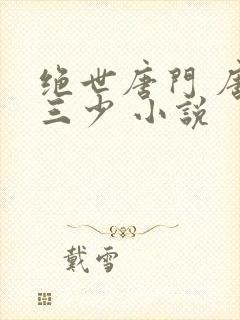 绝世唐門 唐
三少 小說
戴雪